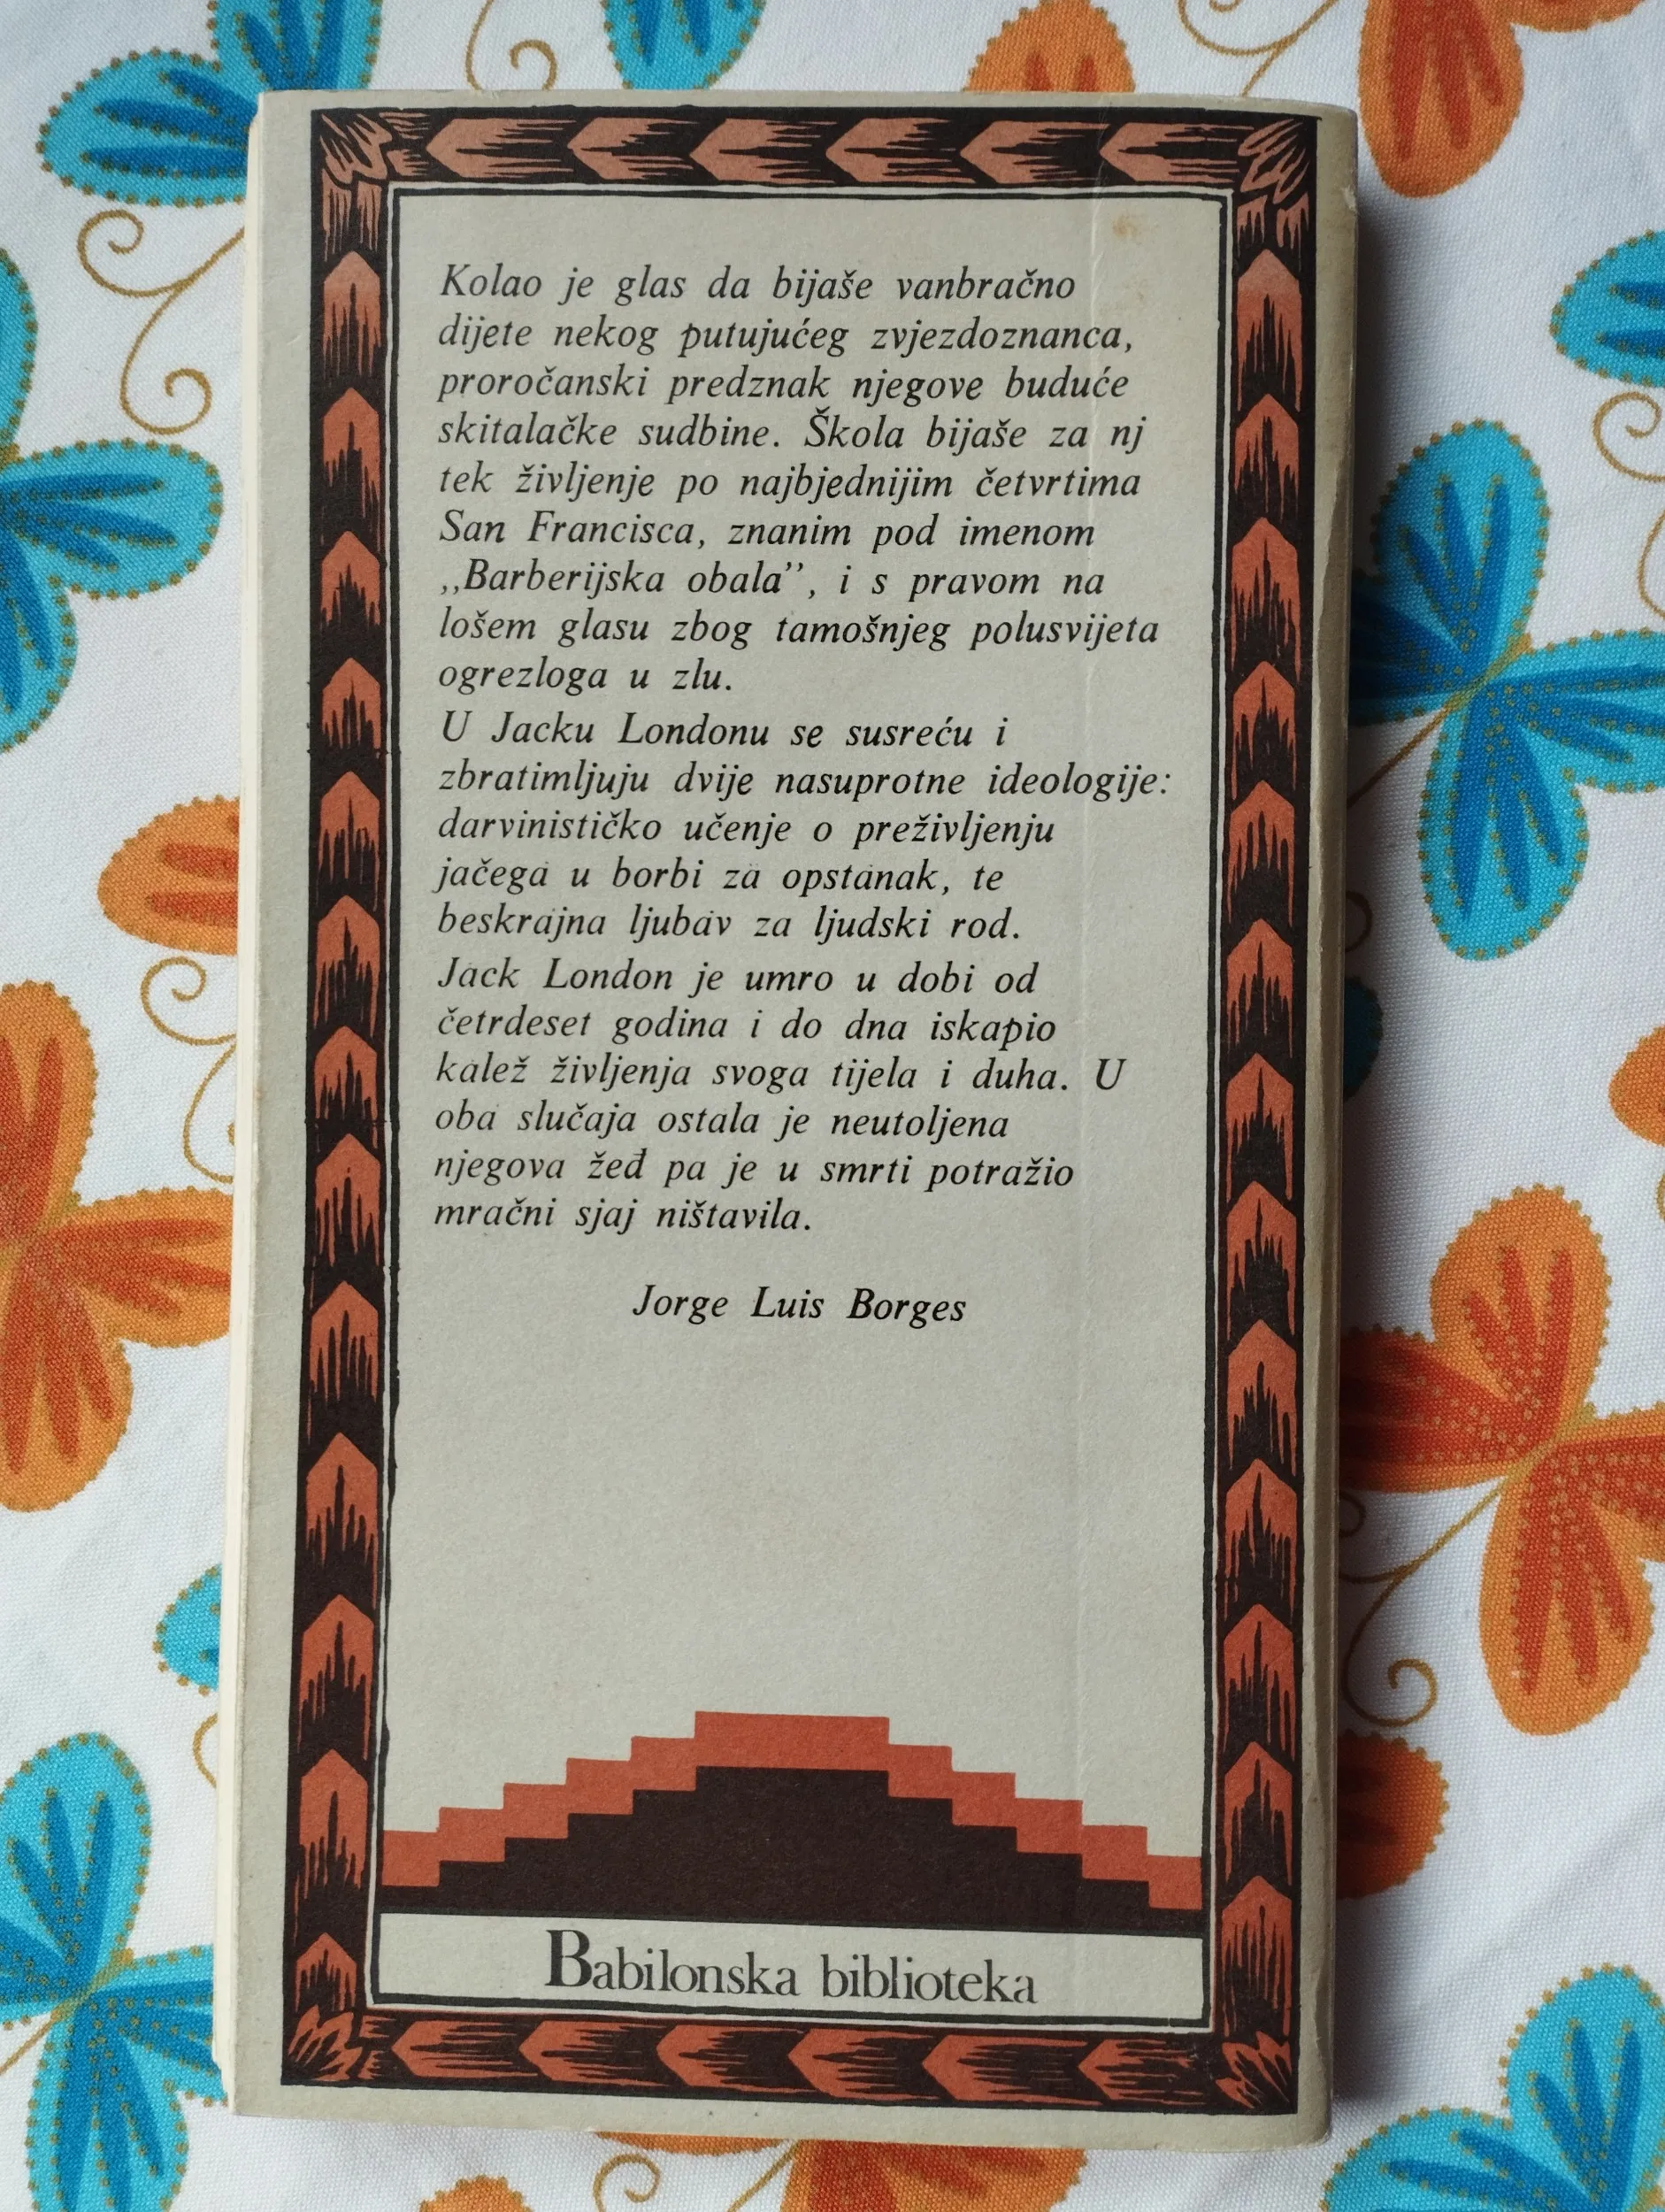 Kolao je glas da bijaše vanbračno
dijete nekog putujućeg zvjezdoznanca,
proročanski predznak njegove buduće
skitalačke sudbine. Škola bijaše za nj
tek življenje po najbjednijim četvrtima
San Francisca, znanim pod imenom
,,Barberijska obala”, i s pravom na
lošem glasu zbog tamošnjeg polusvijeta
ogrezloga u zlu.
U Jacku Londonu se susreću i
zbratimljuju dvije nasuprotne ideologije:
darvinističko učenje o preživljenju
jačega u borbi za opstanak, te
beskrajna ljubav za ljudski rod.
Jack London je umro u dobi od
četrdeset godina i do dna iskapio
kalež življenja svoga tijela i duha. U
oba slučaja ostala je neutoljena
njegova žeđ pa je u smrti potražio
mračni sjaj ništavila.
Jorge Luis Borges
Babilonska biblioteka